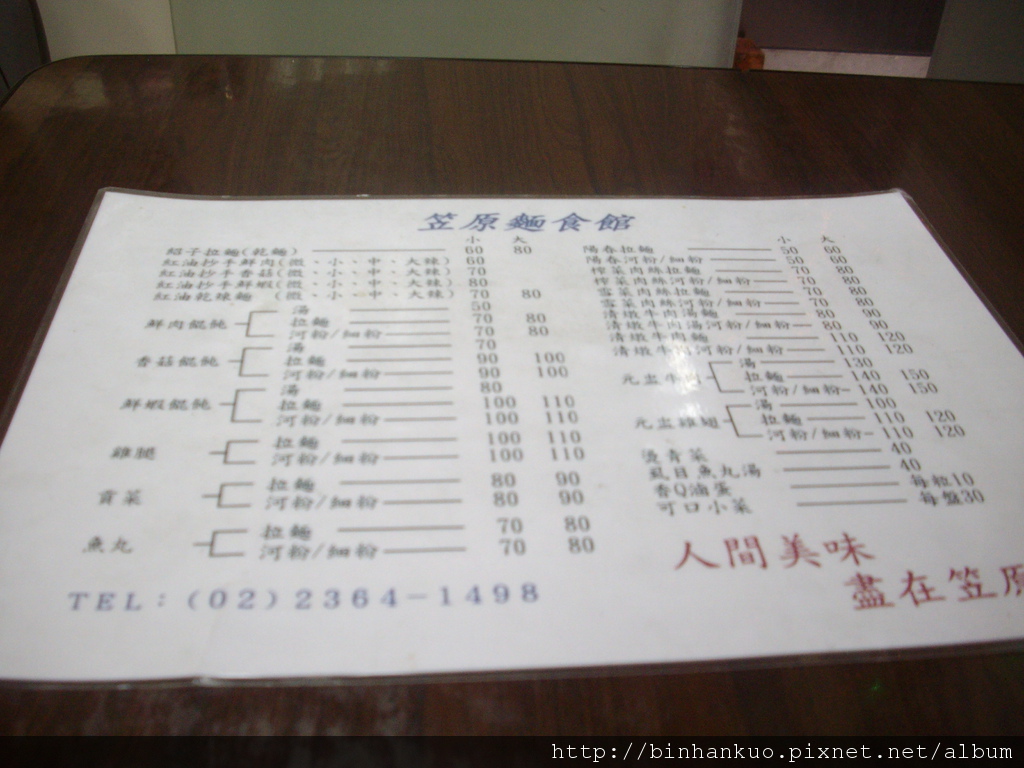 笠原麵食館
小 大
紹子拉麵(乾麵) 60 80
紅油抄手鮮肉(微、小、中、大辣) 60
紅油抄手香菇(微、小、中、大辣) 70
紅油抄手鮮蝦(微、小、中、大辣) 80
紅油乾辣麵 (微、小、中、大辣) 70 80
鮮肉餛飩
湯 50
拉麵 70 80
河粉/細粉 70 80
香菇餛飩
湯 70
拉麵 90 100
河粉/細粉 90 100
鮮蝦餛飩
湯 80
拉麵 100 110
河粉/細粉 100 110
雞腿
拉麵 100 110
河粉/細粉 100 110
貢菜
拉麵 80 90
河粉/細粉 80 90
魚丸
拉麵 70 80
河粉/細粉 70 80
小 大
陽春拉麵 50 60
陽春河粉/細粉 50 60
榨菜肉絲拉麵 70 80
榨菜肉絲河粉/細粉 70 80
雪菜肉絲拉麵 70 80
雪菜肉絲河粉/細粉 70 80
清燉牛肉湯麵 80 90
清燉牛肉湯河粉/細粉 80 90
清燉牛肉麵 110 120
清燉牛肉河粉/細粉 110 120
元盅牛肉
湯 130
拉麵 140 150
河粉/細粉 140 150
元盅雞翅
湯 100
拉麵 110 120
河粉/細粉 110 120
燙青菜 40
虱目魚丸湯 40
香Q滷蛋 每粒10
可口小菜 每盤30
人間美味
盡在笠原
TEL:(02)2364-1498
http://binhankuo.pixnet.net/album